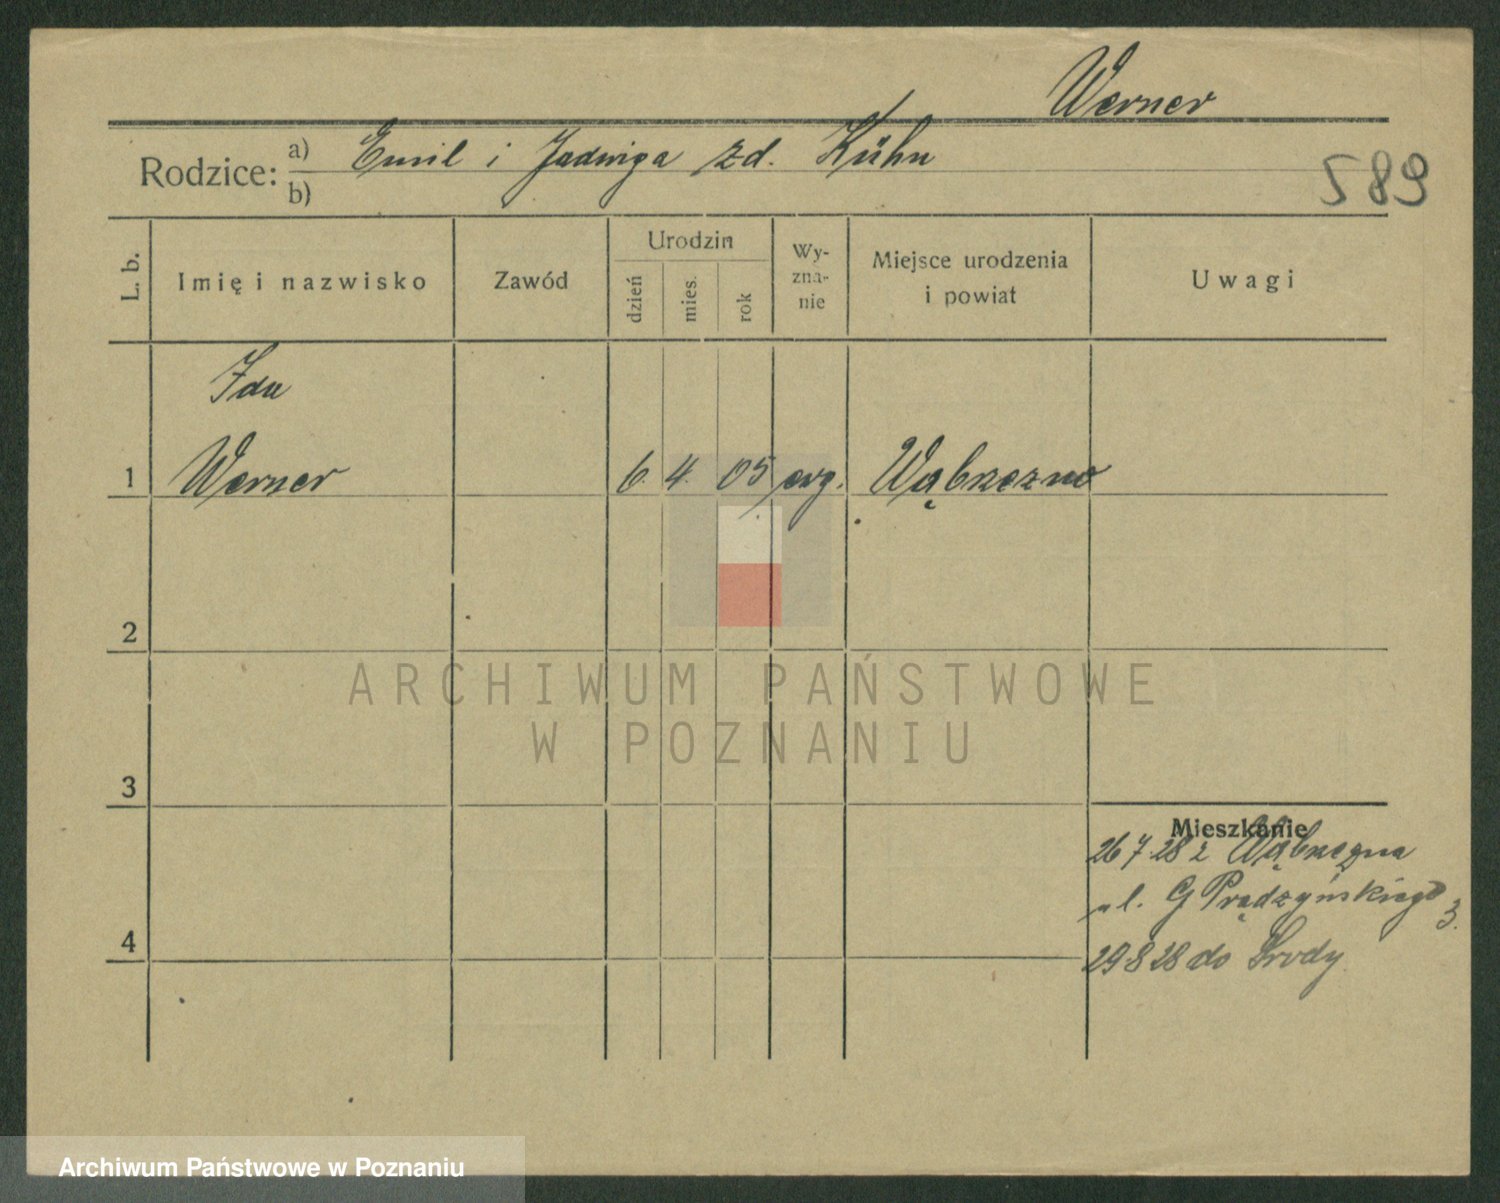 Werner
Rodzice: a) Emil i Jadwiga zd. Kühn
b)
589
L. b.
Imię i nazwisko
Zawód
Urodzin
dzień
mies.
rok
Wy-
zna-
nie
Miejsce urodzenia
i powiat
Uwagi
Ida
1 Werner 6. 4. 05 evg. Wąbrzezno
2
3
4
Mieszkanie
26 7 28 z Wąbrzezna
ul. G Prądzyńskiego 3.
29 8 28 do Srody
ARCHIWUM PAŃSTWOWE
W POZNANIU
Archiwum Państwowe w Poznaniu